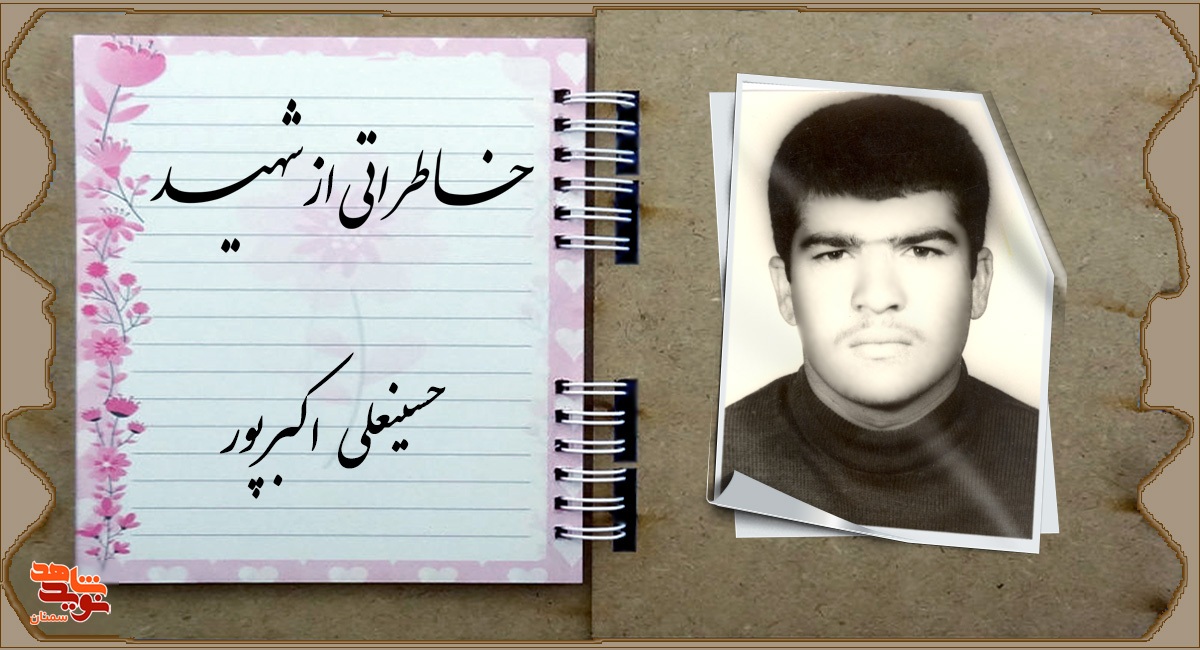 خاطراتی از شهید
حسینعلی اکبرپور
نوید شاهد
سمنان